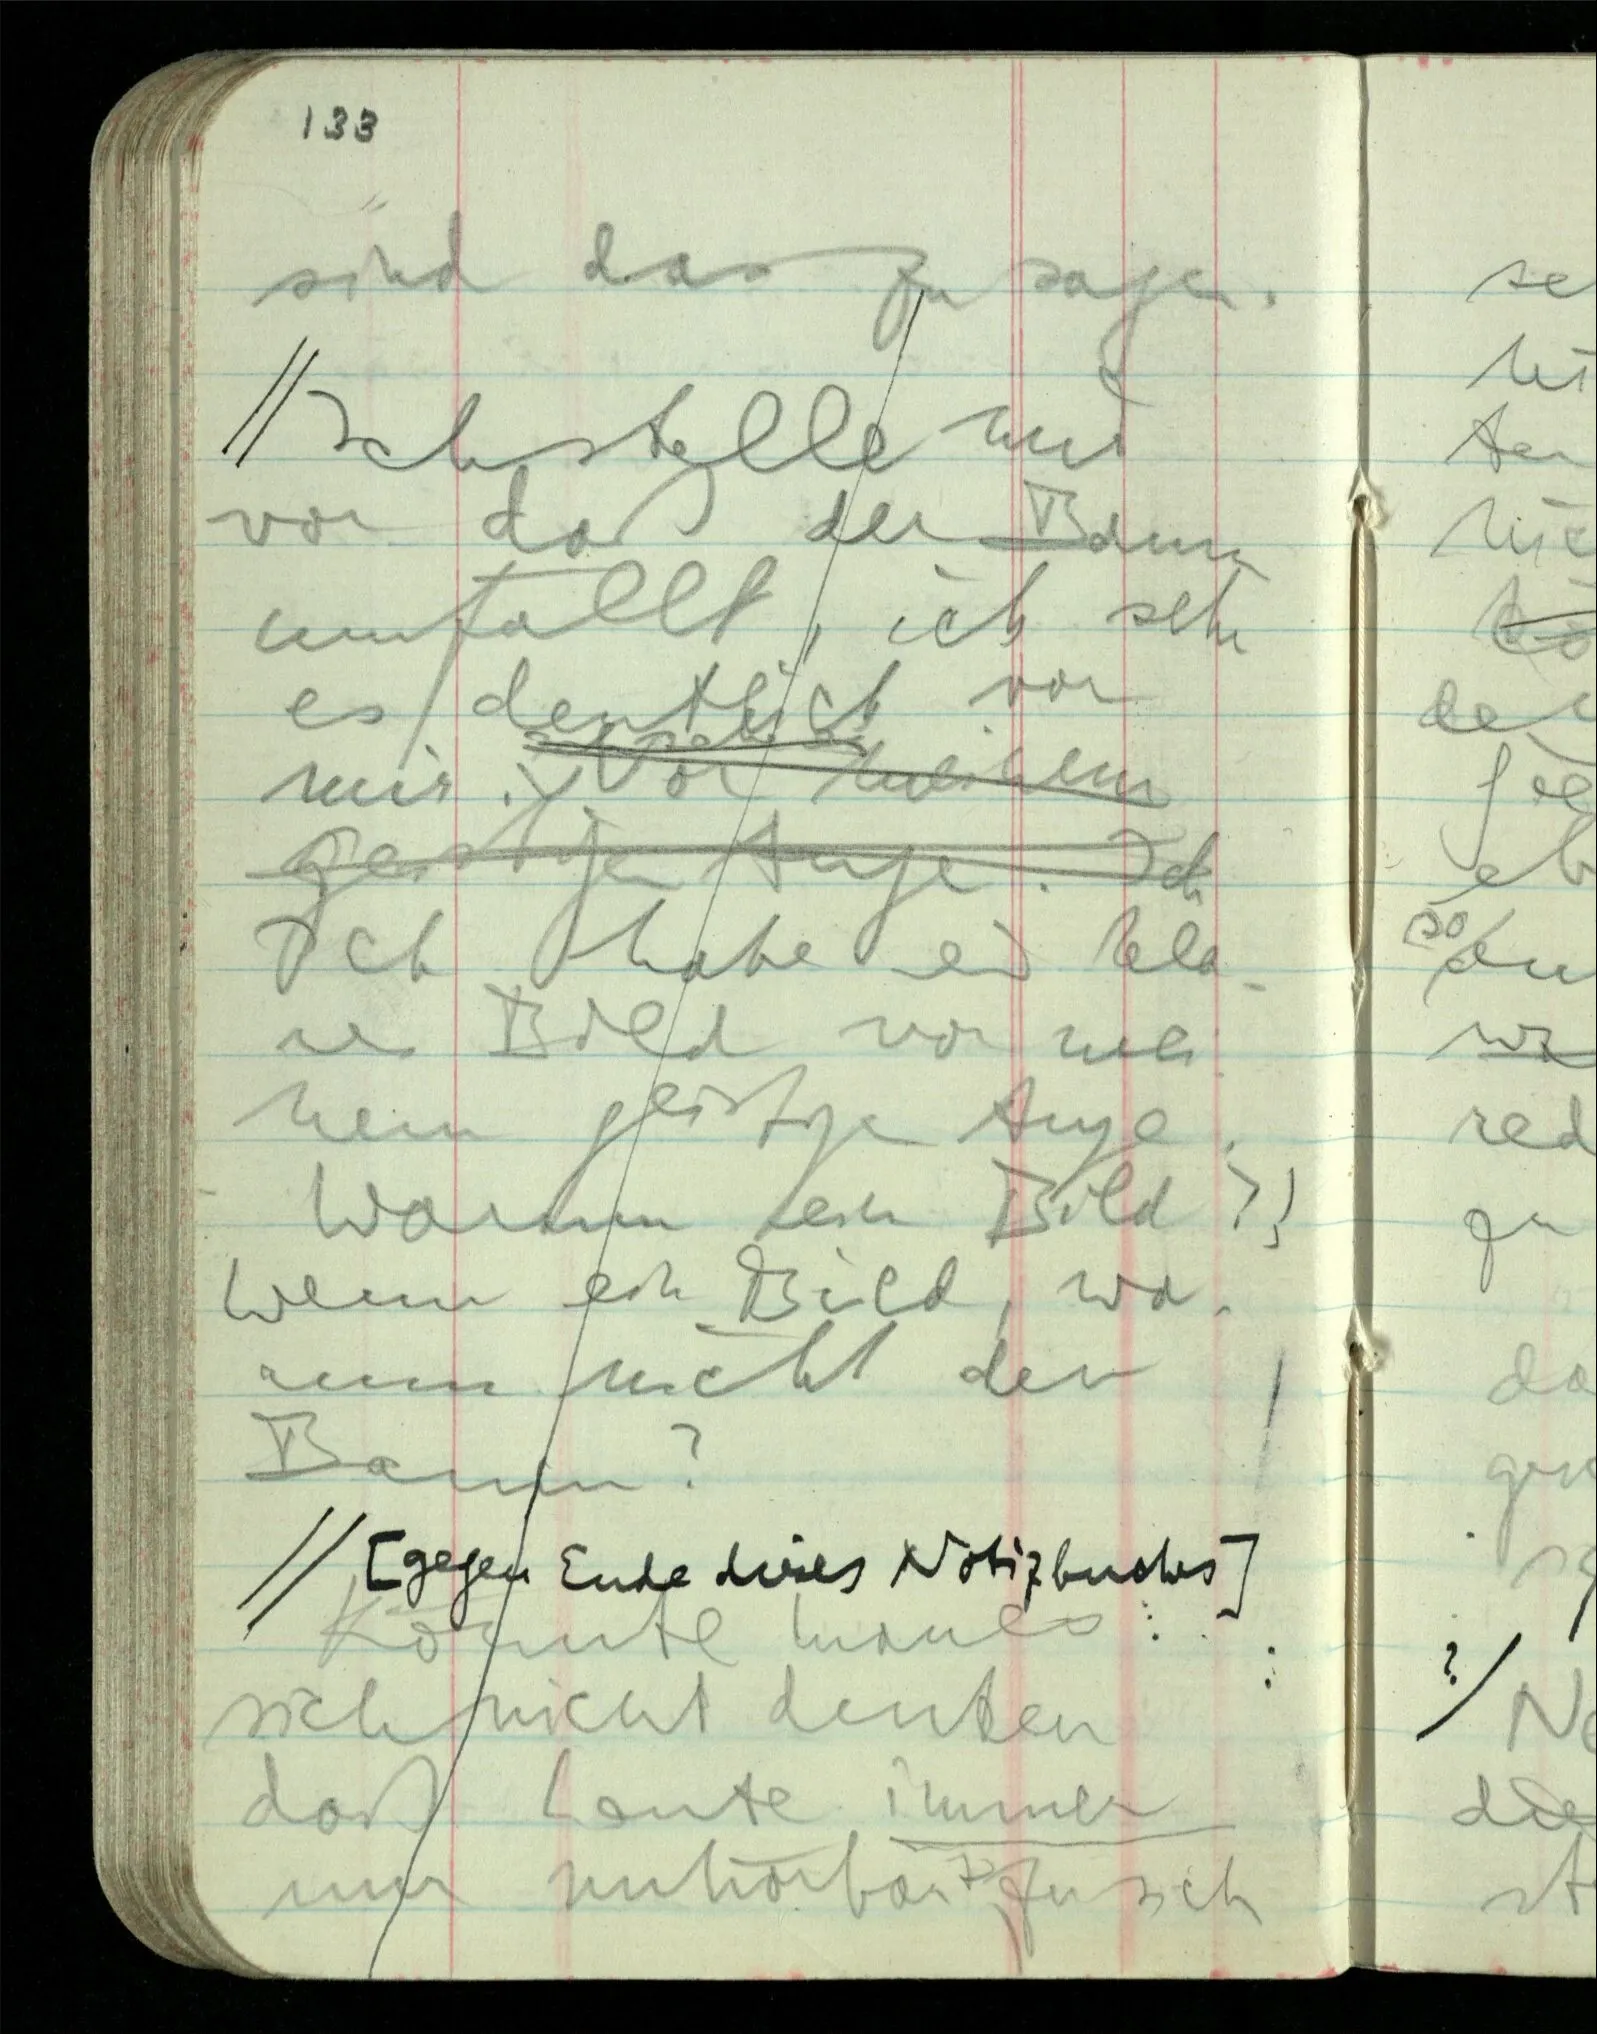 133
sind das zu sagen.
// Ich stelle mir
vor daß der Baum
umfällt, ich sehe
es deutlich vor
mir. Vor meinem
geistigen Auge. Ich
Ich habe ein kla-
res Bild vor mei-
nem geistigen Auge.
Warum ein Bild?!
Wenn ein Bild, wa-
rum nicht den
Baum?
// [gegen Ende dieses Notizbuches]
Könnte man es
sich nicht denken
daß Leute immer
nur unhörbar zu sich